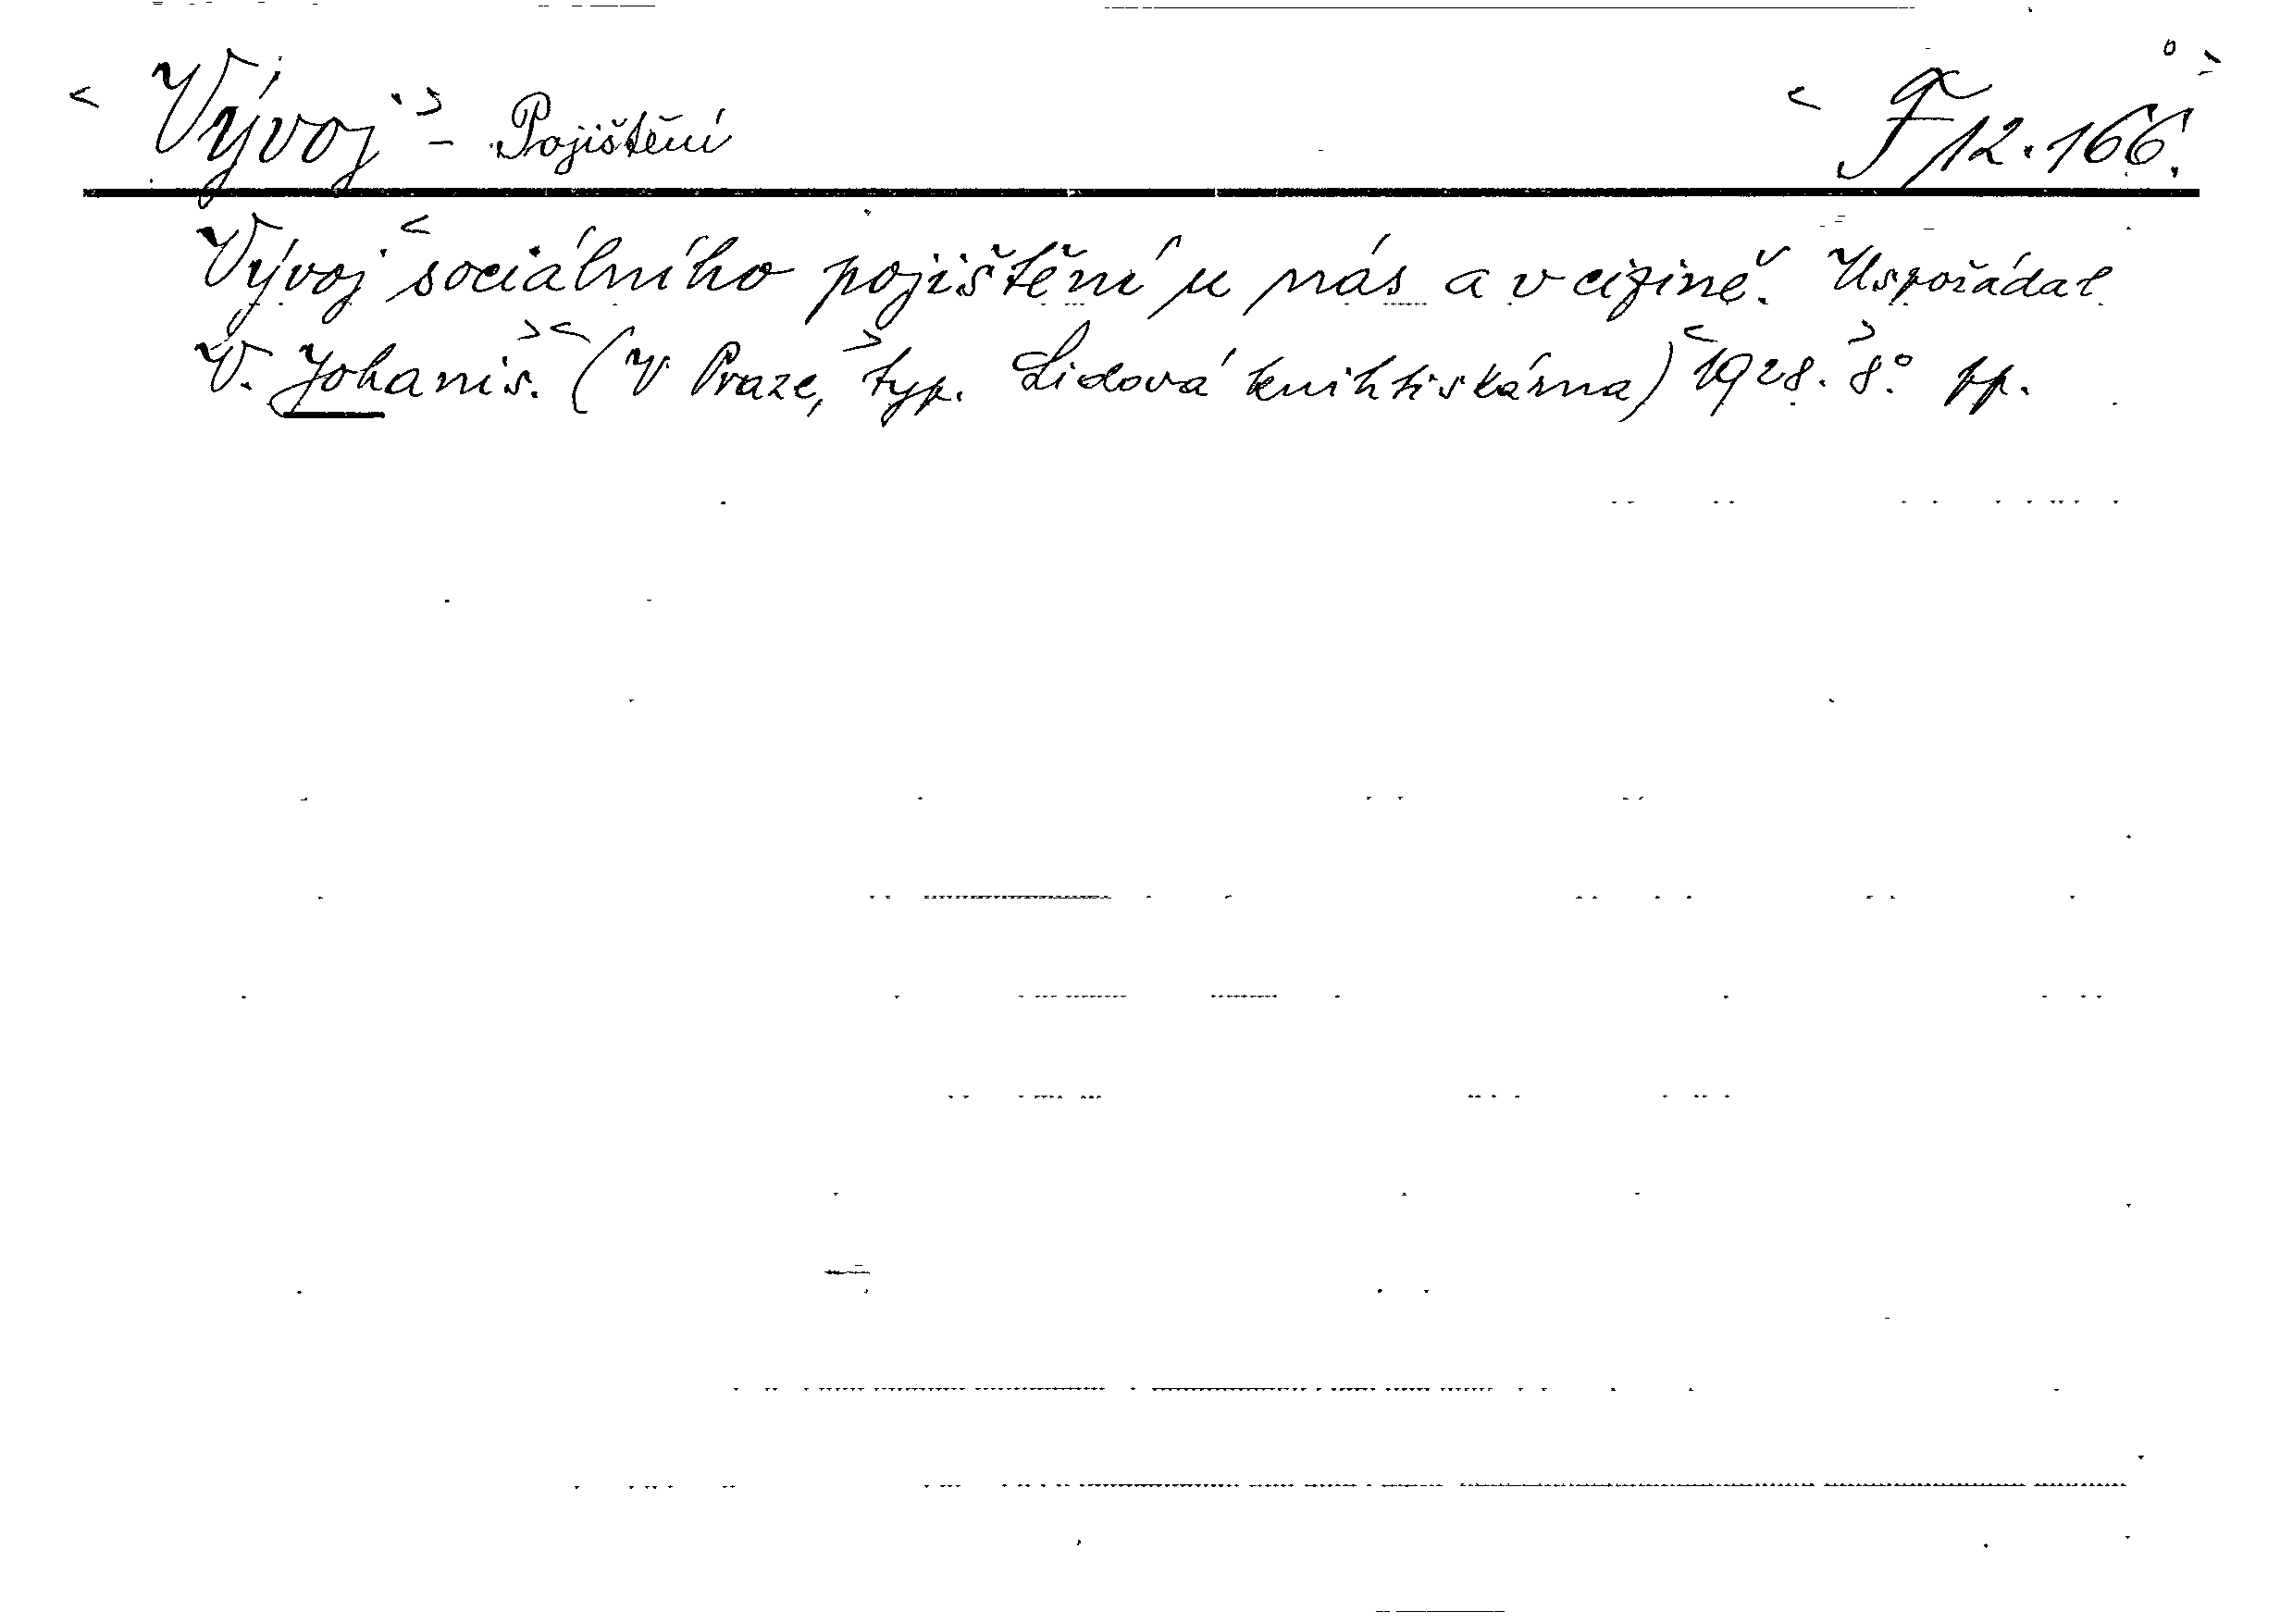 < Vývoj > - Pojištění < F 12.166. >
Vývoj < sociálního pojištění u nás a v cizině. Uspořádal
V. Johanis. > < (V Praze, > typ. Lidová knihtiskárna) < 1928. > 8° pp.